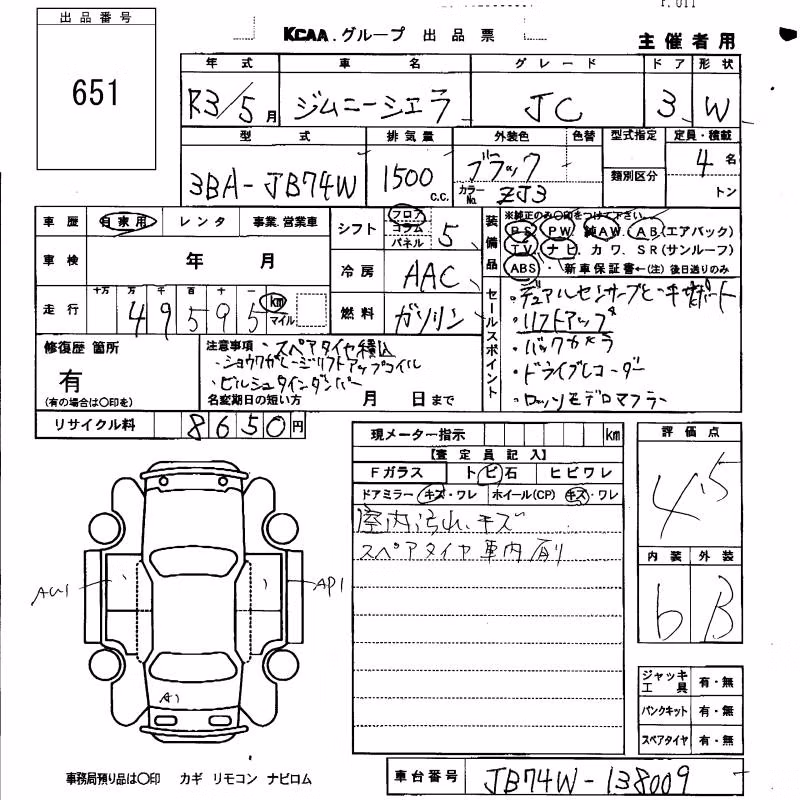 出品番号
651
KCAA.グループ 出品票
主催者用
年式 車名 グレード ドア 形状
R3/5月 ジムニーシエラ JC 3 W
型式 排気量 外装色 色替 型式指定 定員・積載
3BA-JB74W 1500 c.c. ブラック 類別区分 4名
カラーNo. ZJ3 トン
車歴 自家用 レンタ 事業.営業車
シフト フロア コラム パネル 5
装備品 ※純正のみ○印をつけて下さい
PS PW 純AW. AB(エアバック)
TV ナビ.カワ.SR(サンルーフ)
ABS・新車保証書←(注)後日送りのみ
車検 年 月
冷房 AAC
走行 十万 万 千 百 十 一
49595 km マイル
燃料 ガソリン
セールスポイント
・デュアルセンサーブレーキサポート
・リフトアップ
・バックカメラ
・ドライブレコーダー
・ロッソモデロマフラー
修復歴 箇所
有
(有の場合は○印を)
注意事項・スペアタイヤ積込
・ショウワガレージリフトアップコイル
・ビルシュタインダンパー
名変期日の短い方 月 日まで
リサイクル料 8650円
現メーター指示 km
【査定員記入】
Fガラス トビ石 ヒビワレ
ドアミラー キズ・ワレ ホイール(CP) キズ・ワレ
室内汚れ、キズ
スペアタイヤ車内有り
評価点
4.5
内装 外装
b B
AW1
AP1
A1
ジャッキ工具 有・無
パンクキット 有・無
スペアタイヤ 有・無
事務局預り品は○印 カギ リモコン ナビロム
車台番号 JB74W-138009